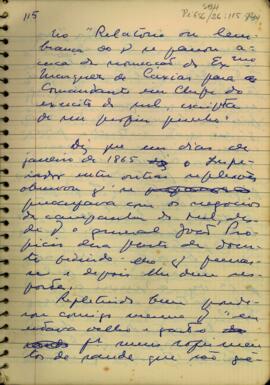 115
SBH
Pi 656/26:115
No "Relatório ou lem-
brança do q̃ se passou a-
cerca da nomeação do Exmo
Marquez de Caxias para
Commandante em Chefe do
exercito do sul, escripta
de seu proprio punho"
Diz que em dias de
janeiro de 1865 o Impe-
rador entre outras reflexões
observou q̃ se
preocupava com os negocios
da campanha do sul, des-
de q̃ o general João Pro-
picio dera parte de doen-
te pedindo-lhe q̃ pensas-
se e depois lhe desse res-
posta.
Reflectindo bem ponde-
rou comigo mesmo q̃ "es-
tava velho e gasto
pr meus soffrimen-
tos de saude que não